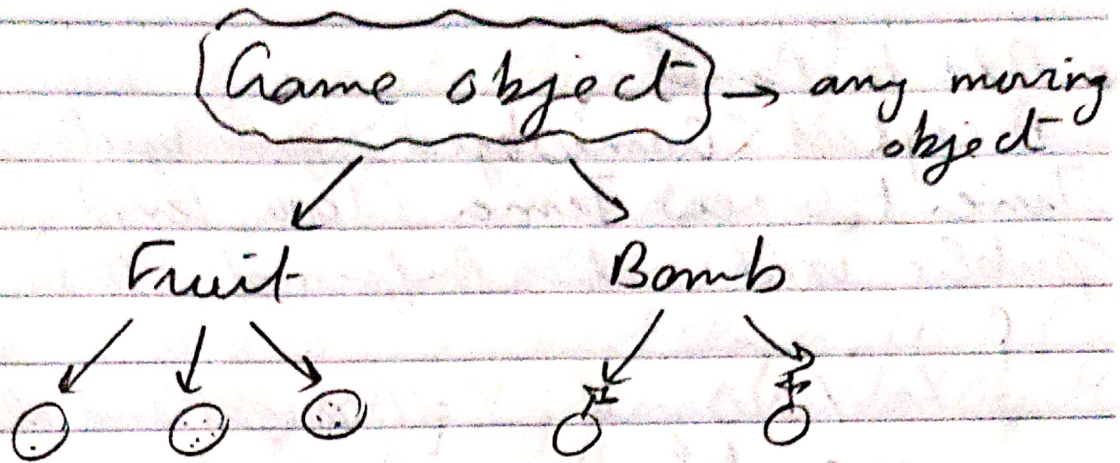 Game object → any moving
object
Fruit Bomb